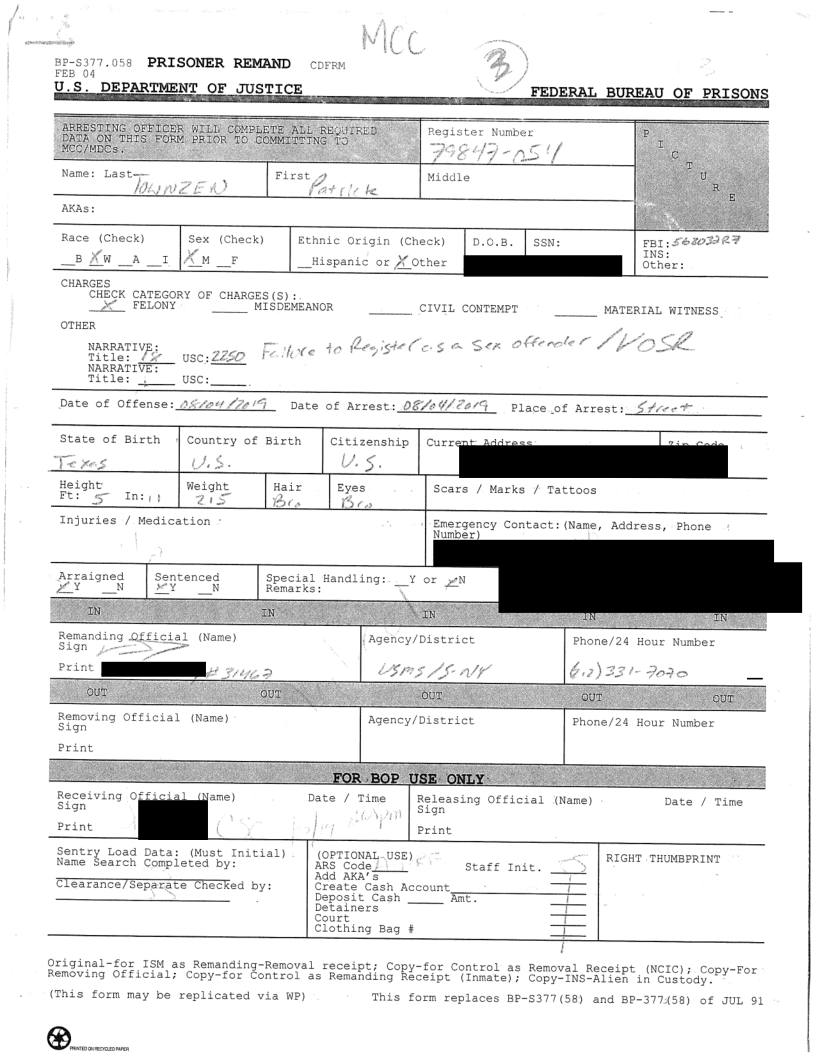 MCC
3
BP-S377.058 PRISONER REMAND CDFRM
FEB 04
U.S. DEPARTMENT OF JUSTICE FEDERAL BUREAU OF PRISONS
ARRESTING OFFICER WILL COMPLETE ALL REQUIRED
DATA ON THIS FORM PRIOR TO COMMITTING TO
MCC/MDCs.
Register Number
79847-054
PICTURE
Name: Last TOWNZEN
First Patrick
Middle
AKAs:
Race (Check)
__B XW __A __I
Sex (Check)
XM __F
Ethnic Origin (Check)
__Hispanic or XOther
D.O.B.
SSN:
FBI: 568032R7
INS:
Other:
CHARGES
CHECK CATEGORY OF CHARGES(S):
X FELONY ______ MISDEMEANOR ______ CIVIL CONTEMPT ______ MATERIAL WITNESS
OTHER
NARRATIVE:
Title: 18 USC: 2250 Failure to Register as a Sex offender / VOSR
NARRATIVE:
Title: USC:
Date of Offense: 08/04/2019 Date of Arrest: 08/04/2019 Place of Arrest: Street
State of Birth
Texas
Country of Birth
U.S.
Citizenship
U.S.
Current Address
Zip Code
Height
Ft: 5 In: 11
Weight
215
Hair
Bro
Eyes
Bro
Scars / Marks / Tattoos
Injuries / Medication
Emergency Contact: (Name, Address, Phone
Number)
Arraigned
XY __N
Sentenced
XY __N
Special Handling: __Y or XN
Remarks:
IN IN IN IN IN
Remanding Official (Name)
Sign
Print #31467
Agency/District
USMS/S-NY
Phone/24 Hour Number
(212)331-7070
OUT OUT OUT OUT OUT
Removing Official (Name)
Sign
Print
Agency/District
Phone/24 Hour Number
FOR BOP USE ONLY
Receiving Official (Name) Date / Time
Sign
Print
Releasing Official (Name) Date / Time
Sign
Print
Sentry Load Data: (Must Initial)
Name Search Completed by:
Clearance/Separate Checked by:
(OPTIONAL USE)
ARS Code Staff Init.
Add AKA's
Create Cash Account
Deposit Cash ______ Amt.
Detainers
Court
Clothing Bag #
RIGHT THUMBPRINT
Original-for ISM as Remanding-Removal receipt; Copy-for Control as Removal Receipt (NCIC); Copy-For
Removing Official; Copy-for Control as Remanding Receipt (Inmate); Copy-INS-Alien in Custody.
(This form may be replicated via WP) This form replaces BP-S377(58) and BP-377(58) of JUL 91
PRINTED ON RECYCLED PAPER